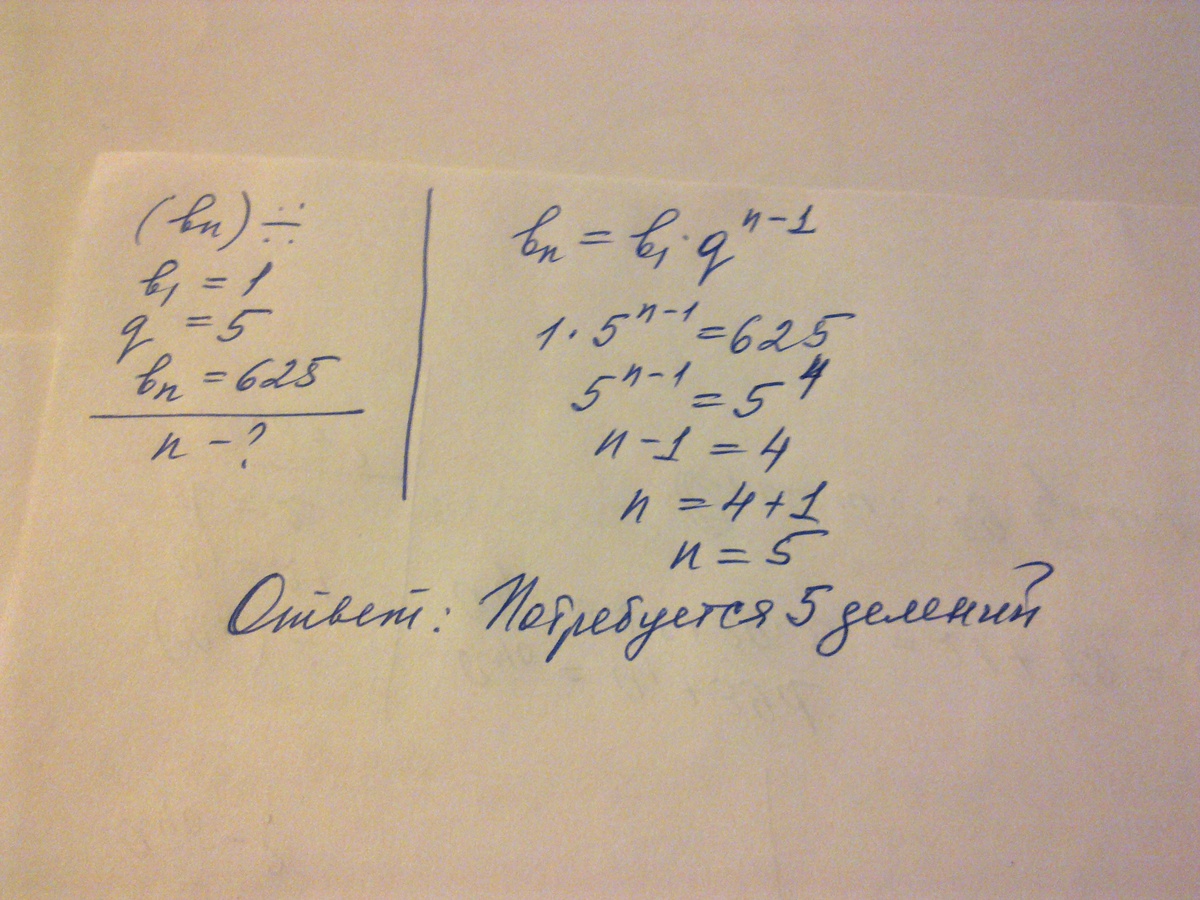 (bn) ∺
b₁ = 1
q = 5
bₙ = 625
n - ?
bₙ = b₁ · qⁿ⁻¹
1 · 5ⁿ⁻¹ = 625
5ⁿ⁻¹ = 5⁴
n - 1 = 4
n = 4 + 1
n = 5
Ответ: Потребуется 5 делений